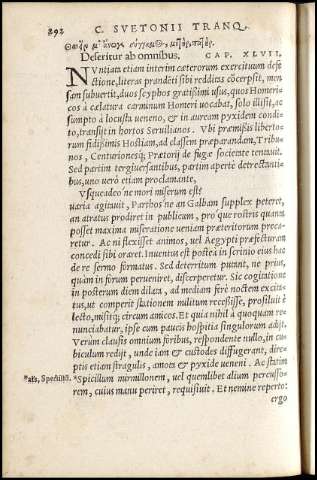 292 C. SVETONII TRANQ.
Deseritur ab omnibus. CAP. XLVII.
NVntiata etiam interim cæterorum exercituum defe
ctione, literas prandēti sibi redditas cōcerpsit, men
sam subuertit, duos scyphos gratissimi usus, quos Homeri-
cos à cælatura carminum Homeri uocabat, solo illisit, ac
sumpto à locusta ueneno, & in auream pyxidem condi-
to, transijt in hortos Seruilianos. Vbi præmissis liberto-
rum fidissimis Hostiam, ad classem præparandam, Tribu-
nos, Centurionesq; Prætorij de fugæ societate tentauit.
Sed partim tergiuersantibus, partim apertè detrectanti-
bus, uno uerò etiam proclamante,
Vsqueadeo'ne mori miserum est?
uaria agitauit, Parthos'ne an Galbam supplex peteret,
an atratus prodiret in publicum, pro'que rostris quanta
posset maxima miseratione ueniam præteriorum preca-
retur. Ac ni flexisset animos, uel Aegypti præfecturam
concedi sibi oraret. Inuentus est postea in scrinio eius hac
de re sermo formatus. Sed deterritum putant, ne prius,
quàm in forum perueniret, discerperetur. Sic cogitatione
in posterum diem dilata, ad mediam ferè noctem excita-
tus, ut comperit stationem militum recessisse, prosiluit è
lecto, misitq; circum amicos. Et quia nihil à quoquam re-
nunciabatur, ipse cum paucis hospitia singulorum adijt.
Verum clausis omnium foribus, respondente nullo, in cu-
biculum redijt, unde iam & custodes diffugerant, dire-
ptis etiam stragulis, amota & pyxide ueneni. Ac statim
*als, Specillū. *Spicillum mirmillonem, uel quemlibet alium percusso-
rem, cuius manu periret, requisiuit. Et nemine reperto:
ergo